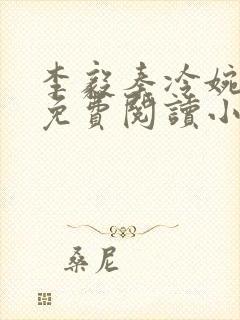 李毅秦冷婉
免費閱讀小
桑尼